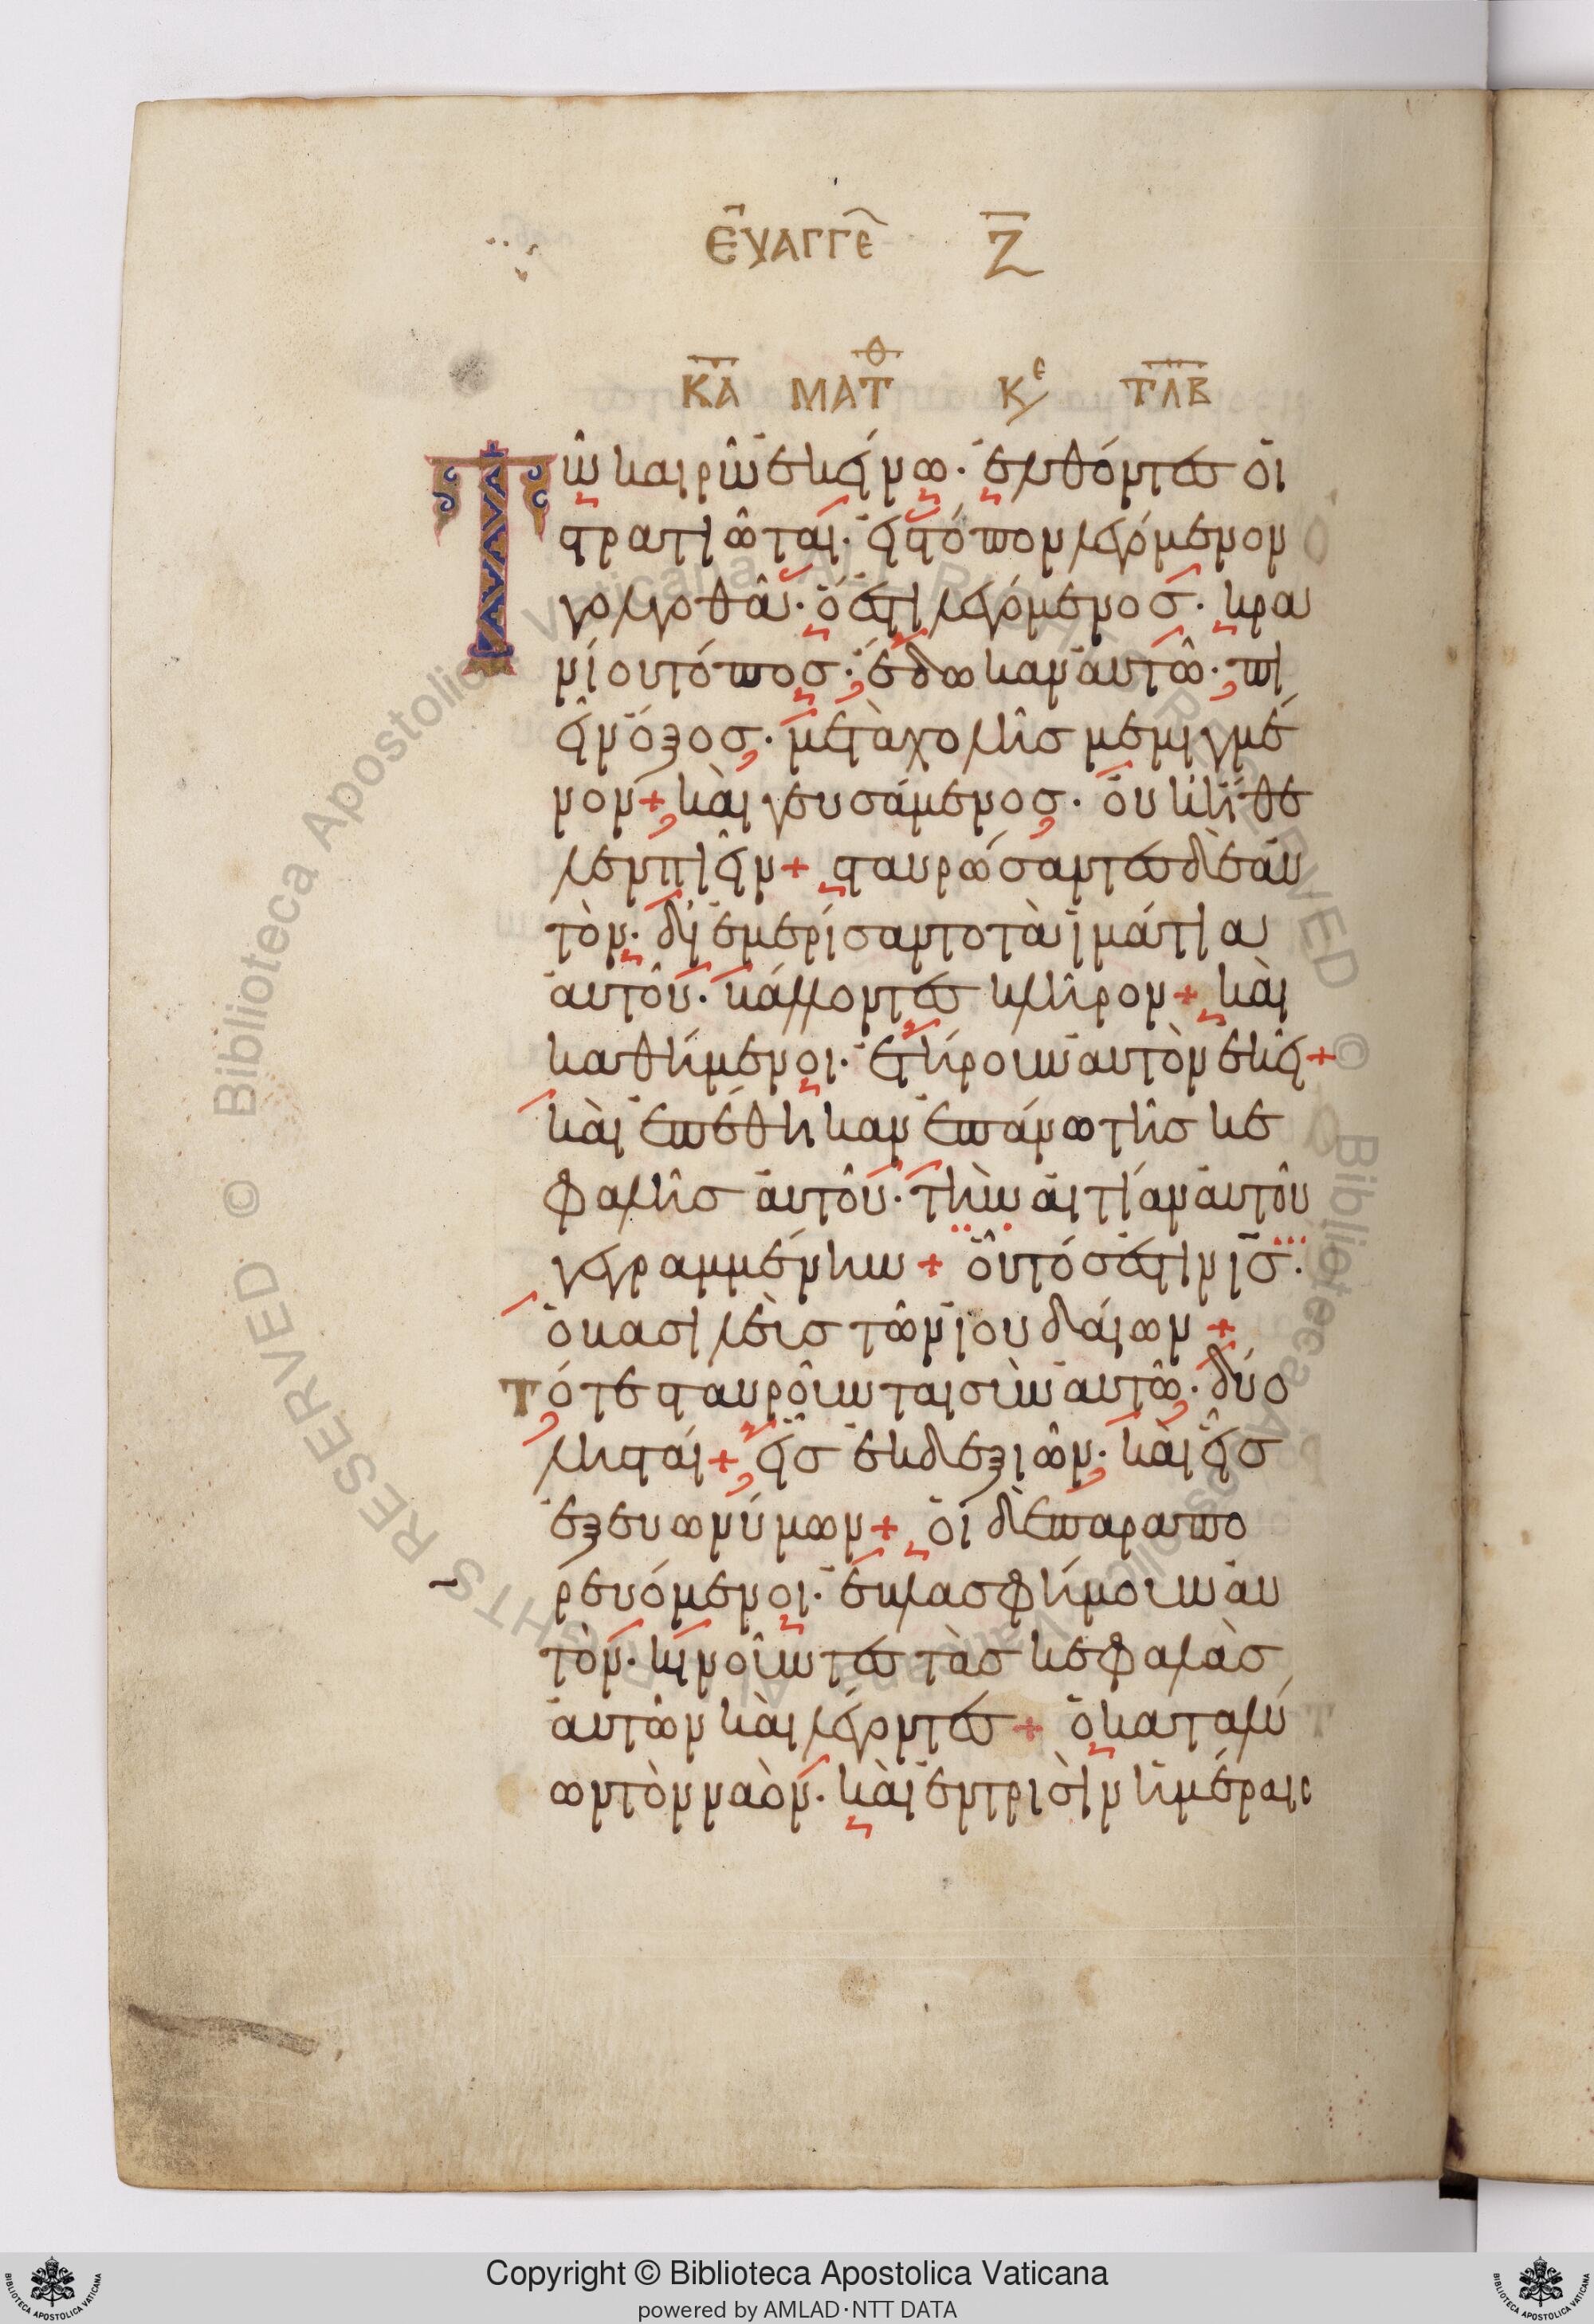 ΕΥΑΓΓΕ Ζ
ΚΑ ΜΑΤΘ ΚΕ ΤΛΒ
Τῶ καιρῶ ἐκείνω· ἐλθόντες οἱ
στρατιῶται· εἰς τόπον λεγόμενον
γολγοθᾶ· ὅ ἐστι λεγόμενος· κρα
νίου τόπος· ἔδωκαν αὐτῶ· πι
εῖν ὄξος· μετὰ χολῆς μεμιγμέ
νον + καὶ γευσάμενος· οὐκ ἤθε
λεν πιεῖν + σταυρώσαντες δὲ αὐ
τὸν· διεμερίσαντο τὰ ἱμάτια
αὐτοῦ· βάλλοντες κλῆρον + καὶ
καθήμενοι· ἐτήρουν αὐτὸν ἐκεῖ +
καὶ ἐπέθηκαν ἐπάνω τῆς κε
φαλῆς αὐτοῦ· τὴν αἰτίαν αὐτοῦ
γεγραμμένην + οὗτός ἐστιν ις·
ὁ βασιλεὺς τῶν ἰουδαίων +
Τότε σταυροῦνται σὺν αὐτῶ· δύο
λησταί + εἷς ἐκ δεξιῶν· καὶ εἷς
ἐξ εὐωνύμων + οἱ δὲ παραπο
ρευόμενοι· ἐβλασφήμουν αὐ
τὸν· κινοῦντες τὰς κεφαλὰς
αὐτῶν καὶ λέγοντες + ὁ καταλύ
ων τὸν ναὸν· καὶ ἐν τρισὶν ἡμέραις
Copyright © Biblioteca Apostolica Vaticana
powered by AMLAD·NTT DATA